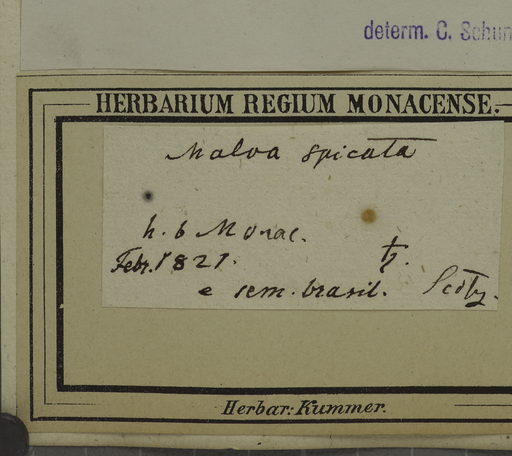 determ. C. Schun
HERBARIUM REGIUM MONACENSE.
Malva spicata
h. b Monac.
Febr. 1821. ђ.
e sem. brasil.
Herbar: Kummer.